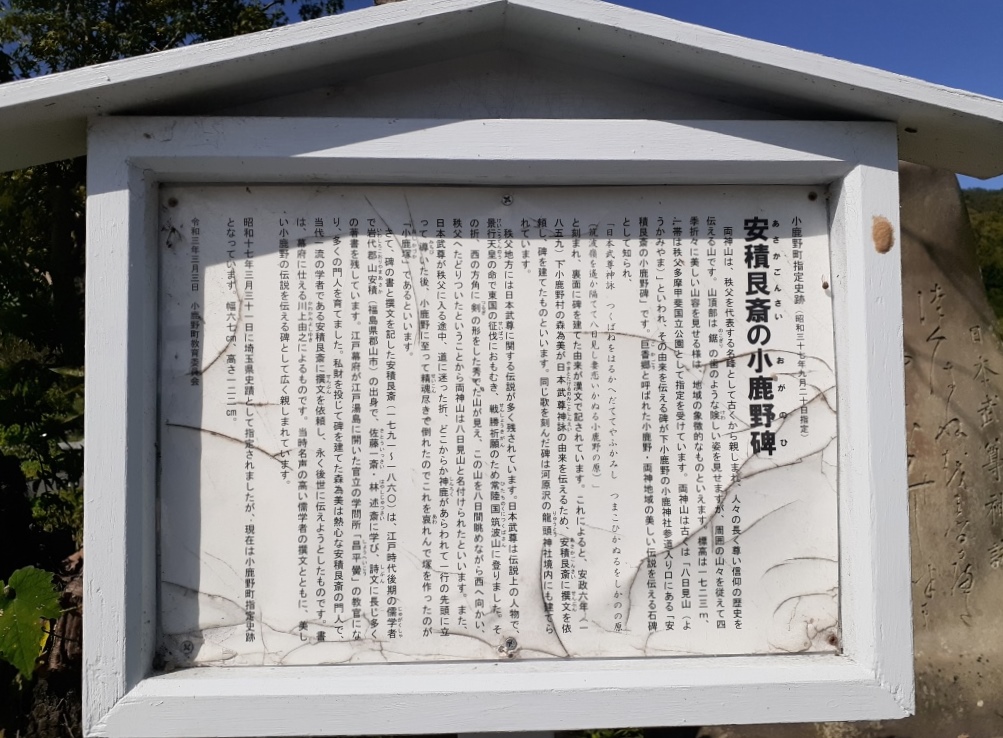 小鹿野町指定史跡 (昭和三十七年九月二十日指定)
安積艮斎の小鹿野碑
あさかごんさい おがのひ
両神山は、秩父を代表する名峰として古くから親しまれ、人々の長く尊い信仰の歴史を
伝える山です。山頂部は鋸の歯のような険しい姿を見せますが、周囲の山々を従えて四
季折々に美しい山容を見せる様は、地域の象徴的なものといえます。標高は一七二三m、
一帯は秩父多摩甲斐国立公園として指定を受けています。両神山は古くは「八日見山(よ
うかみやま)」といわれ、その由来を伝える碑が下小鹿野の小鹿神社参道入り口にある「安
積艮斎の小鹿野碑」です。巨香郷と呼ばれた小鹿野・両神地域の美しい伝説を伝える石碑
として知られ、
「日本武尊神詠 つくばねをはるかへだててやふかみし つまこひかぬるをしかのの原
(筑波嶺を遙か隔てて八日見し妻恋いかぬる小鹿野の原)」
と刻まれ、裏面に碑を建てた由来が漢文で記されています。これによると、安政六年(一
八五九)、下小鹿野村の森為美が日本武尊神詠の由来を伝えるため、安積艮斎に撰文を依
頼し、碑を建てたものといいます。同じ歌を刻んだ碑は河原沢の龍頭神社境内にも建てら
れています。
秩父地方には日本武尊に関する伝説が多く残されています。日本武尊は伝説上の人物で、
景行天皇の命で東国の征伐におもむき、戦勝祈願のため常陸国筑波山に登りました。そ
の折、西の方角に剣の形をした秀でた山が見え、この山を八日間眺めながら西へ向かい、
秩父へたどりついたということから両神山は八日見山と名付けられたといいます。また、
日本武尊が秩父に入る途中、道に迷った折、どこからか神鹿があらわれて一行の先頭に立
って導いた後、小鹿野に至って精魂尽きて倒れたのでこれを哀れんで塚を作ったのが
「小鹿塚」であるといいます。
さて、碑の書と撰文を記した安積艮斎(一七九一~一八六〇)は、江戸時代後期の儒学者
で岩代郡山安積(福島県郡山市)の出身で、佐藤一斎・林述斎に学び、詩文に長じ多く
の著書を残しています。江戸幕府が江戸湯島に開いた官立の学問所「昌平黌」の教官にな
り、多くの門人を育てました。私財を投じて碑を建てた森為美は熱心な安積艮斎の門人で、
当代一流の学者である安積艮斎に撰文を依頼し、永く後世に伝えようとしたものです。書
は、幕府に仕える川上由之によるものです。当時名声の高い儒学者の撰文とともに、美し
い小鹿野の伝説を伝える碑として広く親しまれています。
昭和十七年三月三十一日に埼玉県史蹟として指定されましたが、現在は小鹿野町指定史跡
となっています。幅六七cm、高さ一二二cm。
令和三年三月三日 小鹿野町教育委員会
日本武尊神詠